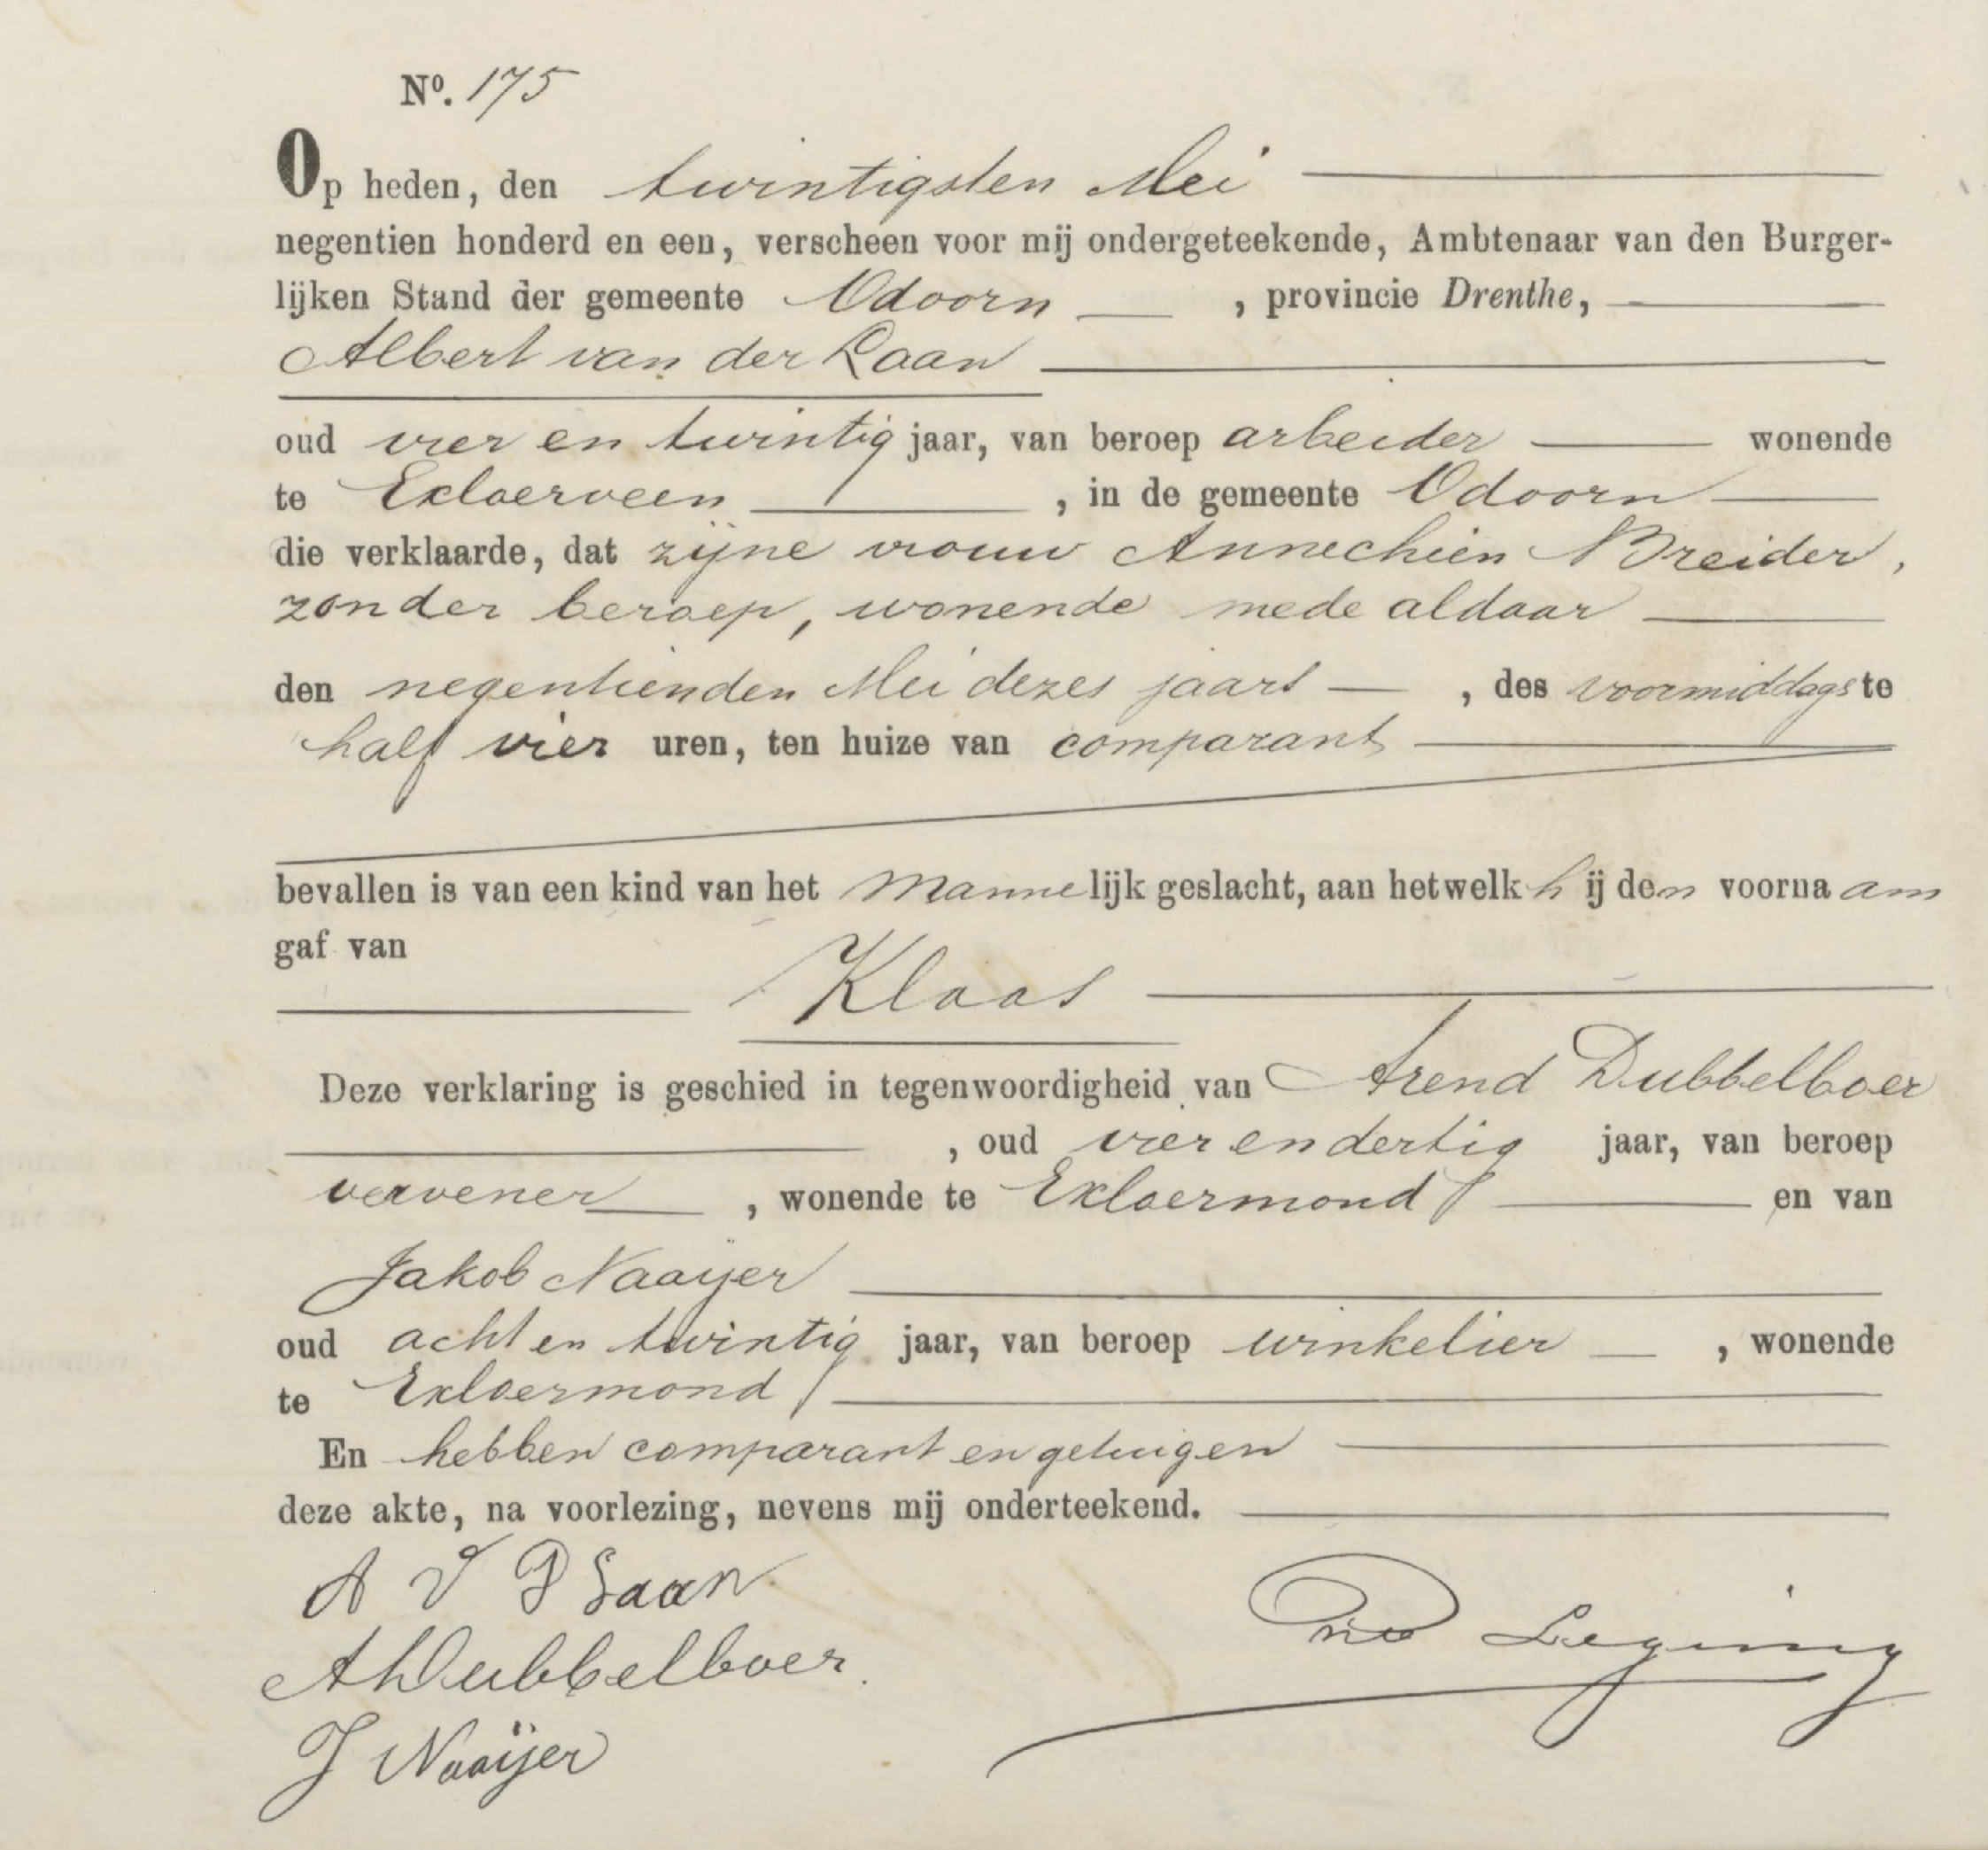 No. 175
Op heden, den twintigsten Mei
negentien honderd en een, verscheen voor mij ondergeteekende, Ambtenaar van den Burger-
lijken Stand der gemeente Odoorn, provincie Drenthe,
Albert van der Laan
oud vier en twintig jaar, van beroep arbeider wonende
te Exloerveen, in de gemeente Odoorn
die verklaarde, dat zijne vrouw Annechien Breider,
zonder beroep, wonende mede aldaar
den negentienden Mei dezes jaars, des voormiddags te
half vier uren, ten huize van comparant
bevallen is van een kind van het Mannelijk geslacht, aan hetwelk hij den voornaam
gaf van
Klaas
Deze verklaring is geschied in tegenwoordigheid van Arend Dubbelboer
, oud vier en dertig jaar, van beroep
vervener, wonende te Exloermond en van
Jakob Naaijer
oud acht en twintig jaar, van beroep winkelier, wonende
te Exloermond
En hebben comparant en getuigen
deze akte, na voorlezing, nevens mij onderteekend.
A V D Laan
A Dubbelboer.
J Naaijer